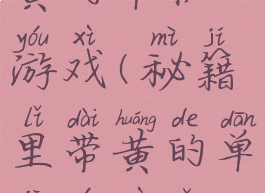 yóu xì mì jí
游戏(秘籍
lǐ dài huáng de dān
里带黄的单